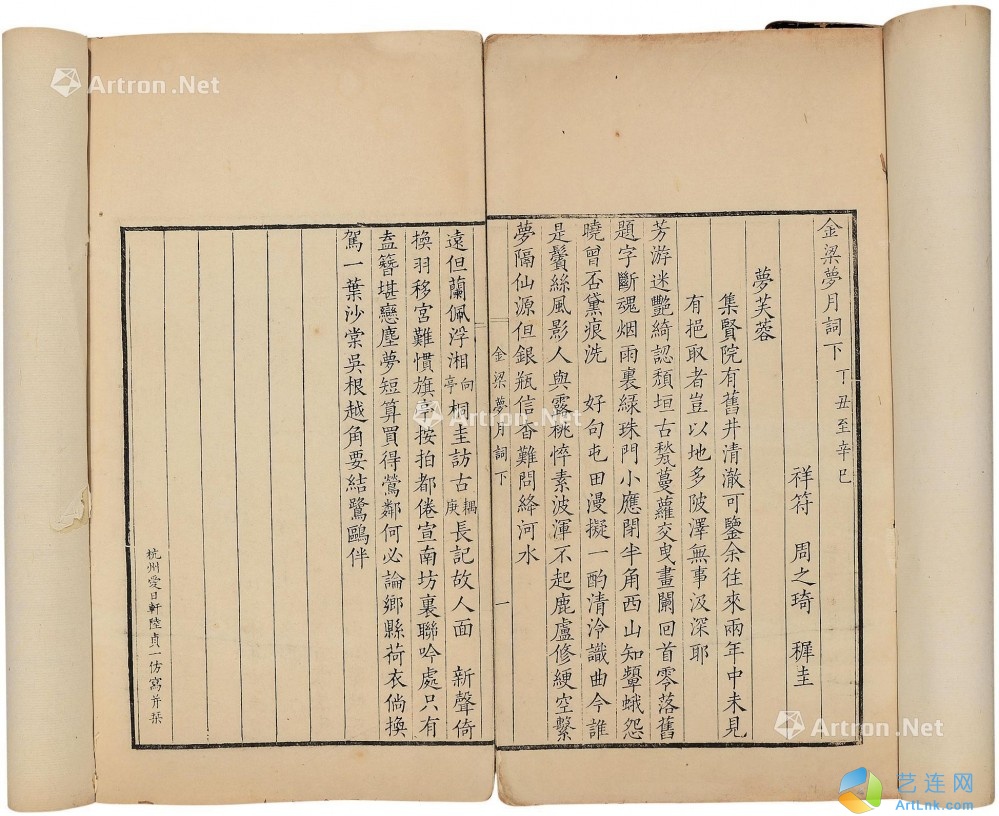 金梁夢月詞下 丁丑至辛巳
祥符 周之琦 穉圭
夢芙蓉
集賢院有舊井清澈可鑒余往來兩年中未見
有挹取者豈以地多陂澤無事汲深耶
芳游迷艷綺認頹垣古甃蔓蘿交曳畫闌回首零落舊
題字斷魂烟雨裏綠珠門小應閉半角西山知顰蛾怨
曉曾否黛痕洗 好句屯田漫擬一酌清泠識曲今誰
是鬢絲風影人與露桃悴素波渾不起鹿盧修綆空繫
夢隔仙源但銀瓶信杳難問絳河水
金梁夢月詞下
一
遠但蘭佩浮湘向亭桐圭訪古耦庚長記故人面 新聲倚
換羽移宮難慣旗亭按拍都倦宣南坊裏聯吟處只有
盍簪堪戀塵夢短算買得鶯鄰何必論鄉縣荷衣倘換
駕一葉沙棠吳根越角要結鷺鷗伴
杭州愛日軒陸貞一仿寫并栞
Artron.Net
Artron.Net
Artron.Net
Artron.Net
艺连网
ArtLnk.com